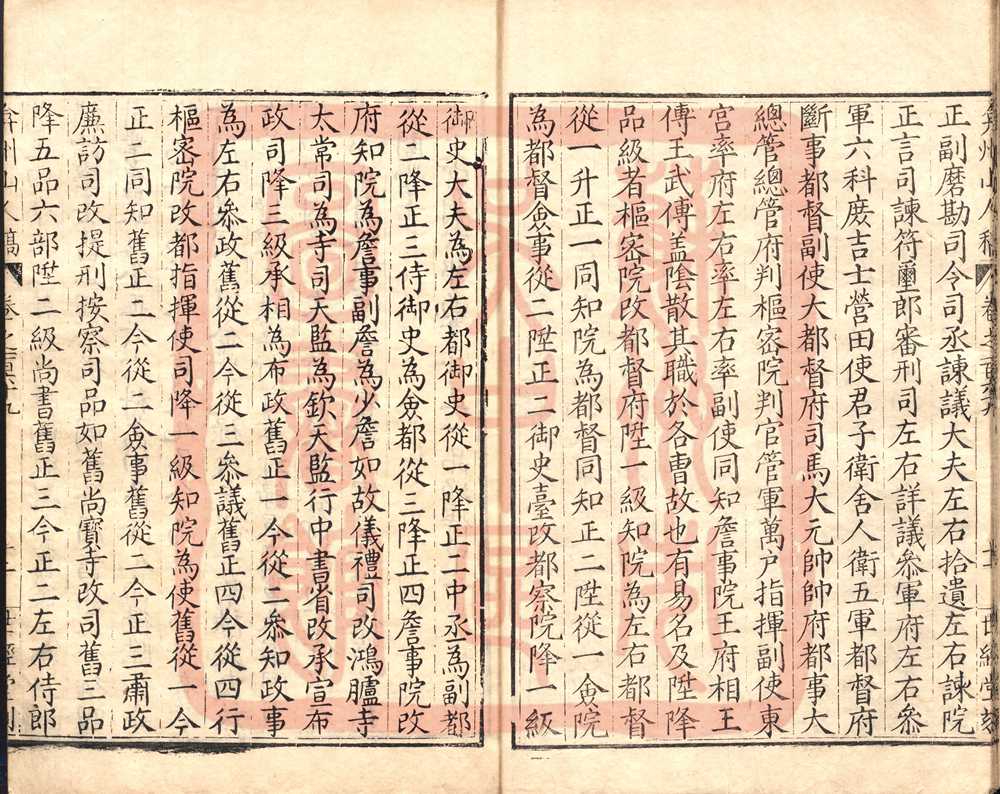 正副磨勘司令司丞諫議大夫左右拾遺左右諫院
正言司諫符璽郎審刑司左右詳議叅軍府左右叅
軍六科庶吉士營田使君子衛舍人衛五軍都督府
斷事都督副使大都督府司馬大元帥帥府都事大
總管總管府判樞密院判官管軍萬戶指揮副使東
宮率府左右率左右率副使同知詹事院王府相王
傅王武傅盖陰散其職於各曹故也有易名及陞降
品級者樞密院改都督府陞一級知院為左右都督
從一升正一同知院為都督同知正二陞從一僉院
為都督僉事從二陞正二御史臺改都察院降一級
御史大夫為左右都御史從一降正二中丞為副都
從二降正三侍御史為僉都從三降正四詹事院改
府知院為詹事副詹為少詹如故儀禮司改鴻臚寺
太常司為寺司天監為欽天監行中書省改承宣布
政司降三級承相為布政舊正一今從二叅知政事
為左右叅政舊從二今從三叅議舊正四今從四行
樞密院改都指揮使司降一級知院為使舊從一今
正二同知舊正二今從二僉事舊從二今正三肅政
廉訪司改提刑按察司品如舊尚寶寺改司舊三品
降五品六部陞二級尚書舊正三今正二左右侍郎
弇州山人稿